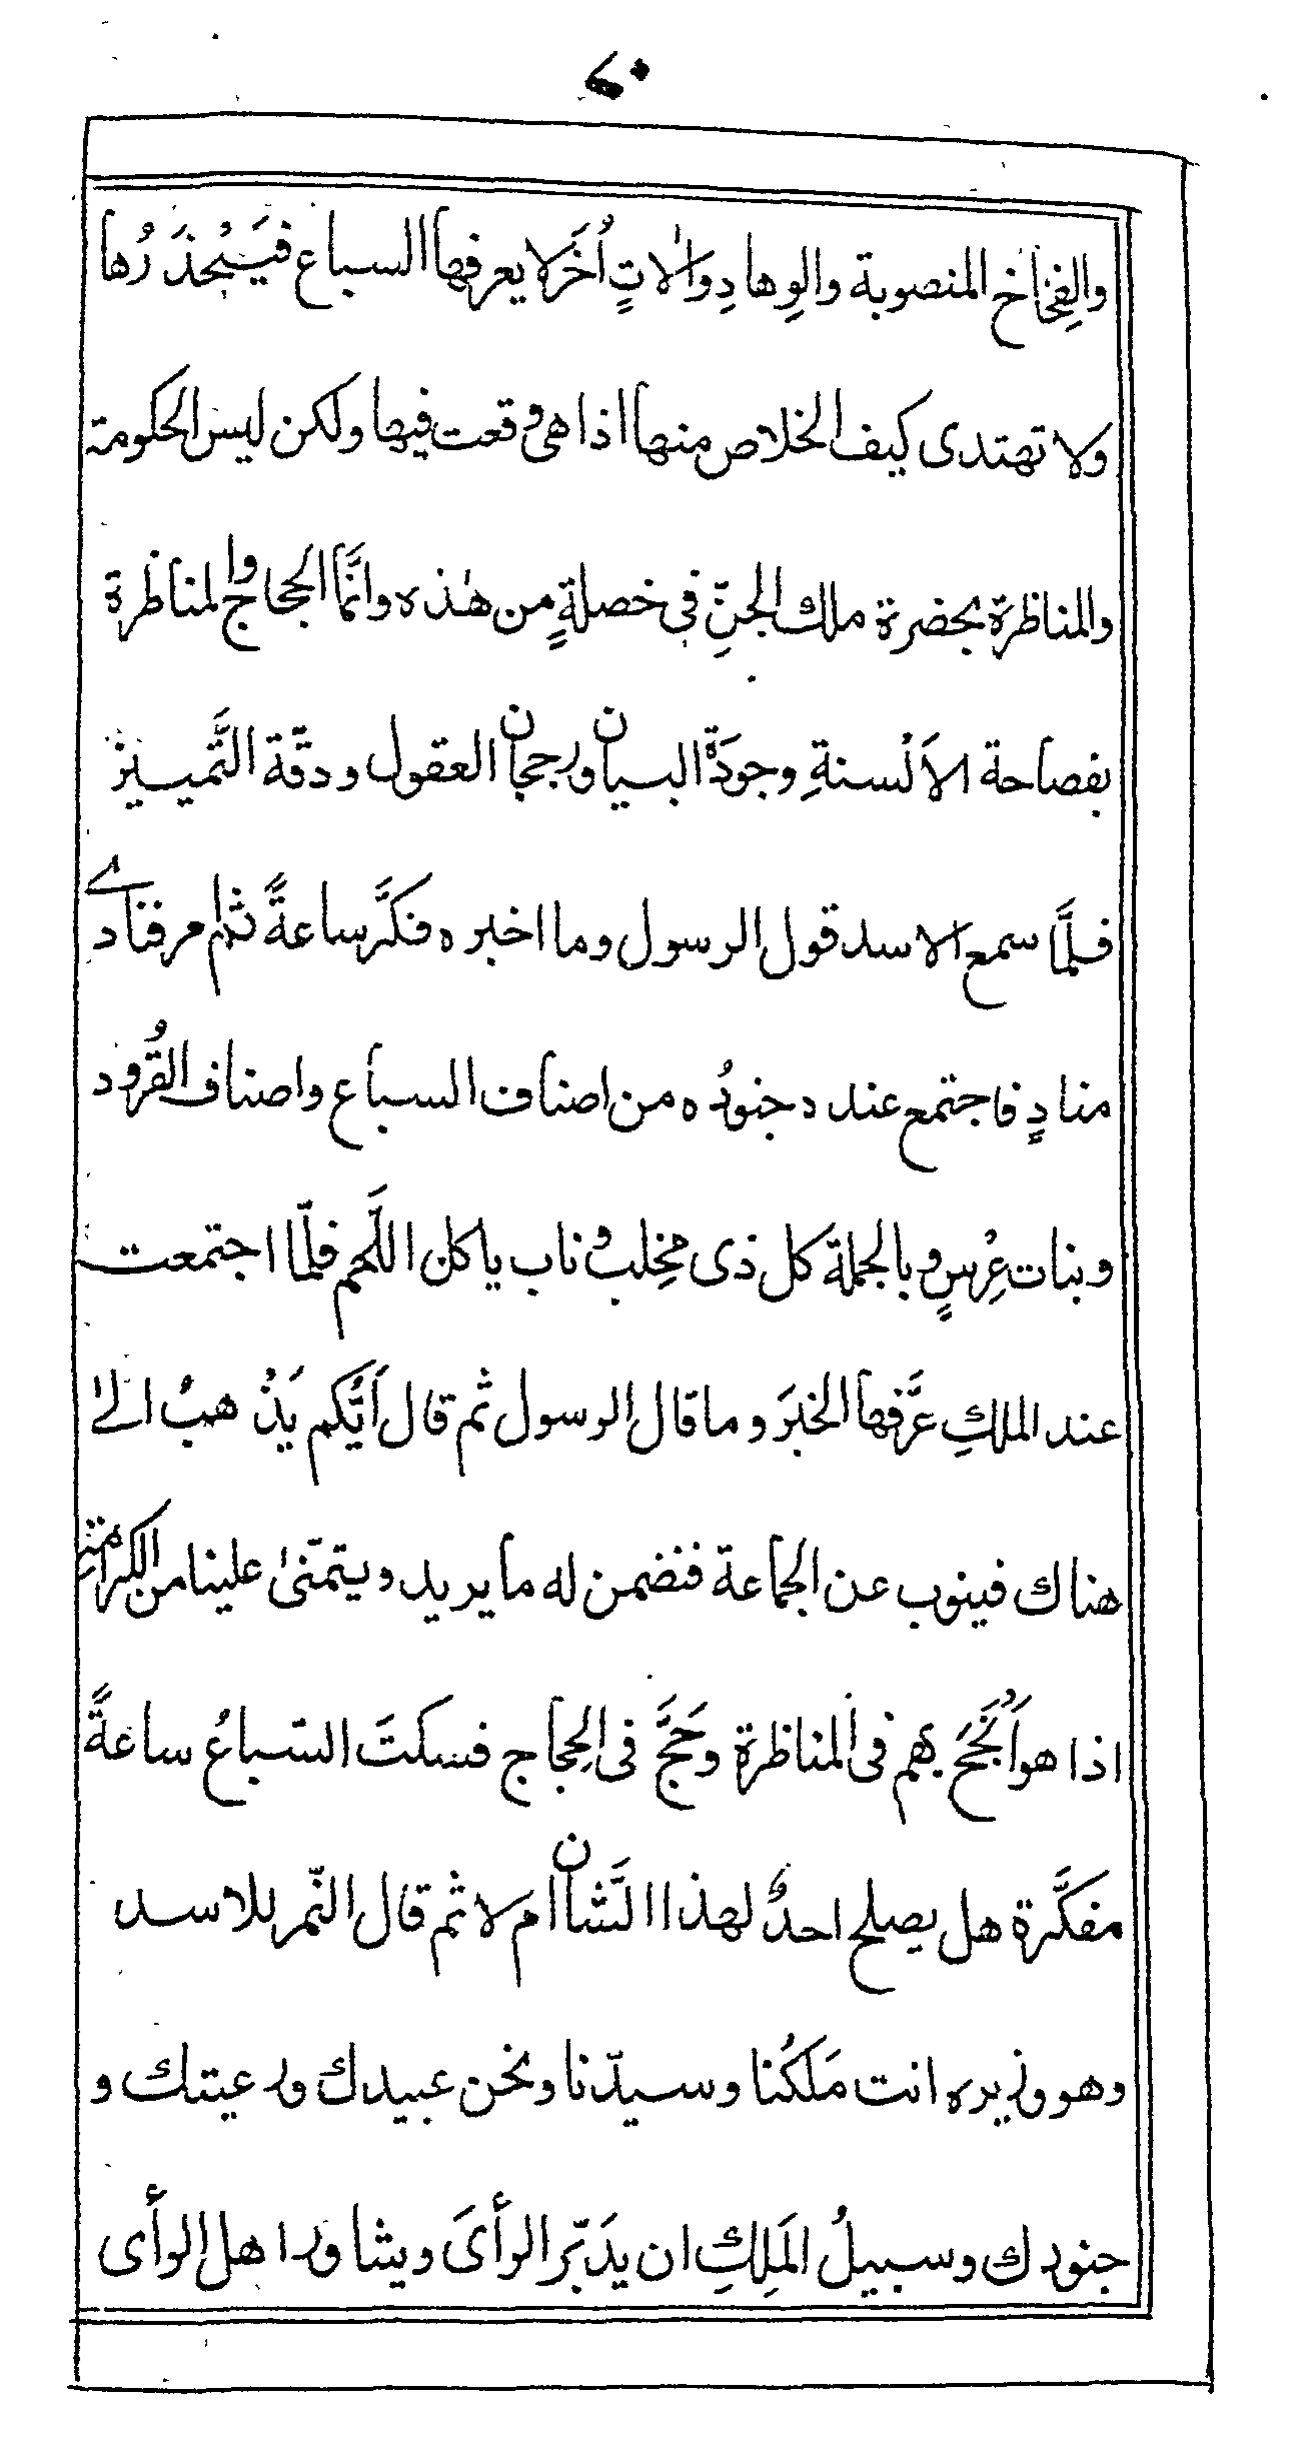 والفِخاخ المنصوبة والوِهادِ واٰلاتٍ اُخَر لا يعرفها السباع فيَحْذَرُها
ولا تهتدى كيف الخلاص منها اذا هى وقعت فيها ولكن ليس الحكومة
والمناظرة بحضرة ملك الجنّ فى خصلةٍ من هٰذه وانَّما الحجاج والمناظرة
بفصاحة الاَلْسنةِ وجوَدَة البيان ورجحان العقول ودقّة التَّمييز
فلمَّا سمع الاسد قول الرسول وما اخبره فكَّر ساعةً ثم امر فنادے
منادٍ فاجتمع عنده جنودُه من اصناف السباع واصناف القُرود
وبنات عِرْسٍ وبالجملة كل ذى مِخلب وناب ياكل اللَّحم فلمّا اجتمعت
عند الملكِ عرَّفها الخبَر وما قال الرسول ثم قال اَيُّكم يَذْهبُ الىٰ
هناك فينوب عن الجماعة فنضمن له ما يريد ويتمنّىٰ علينا من الكرامة
اذا هو اَنْجَحَ بهم فى المناظرة وحَجَّ فى الحِجاج فسكتَ السّباعُ ساعةً
مفكَّرة هل يصلح احدٌ لهذا الشَّان ام لا ثم قال النّمر للاسد
وهو وزيره انت مَلكُنا وسيدّنا ونحن عبيدك ورعيتك و
جنودك وسبيلُ المَلِكِ ان يدَبّر الرأىَ ويشاور اهل الرأى